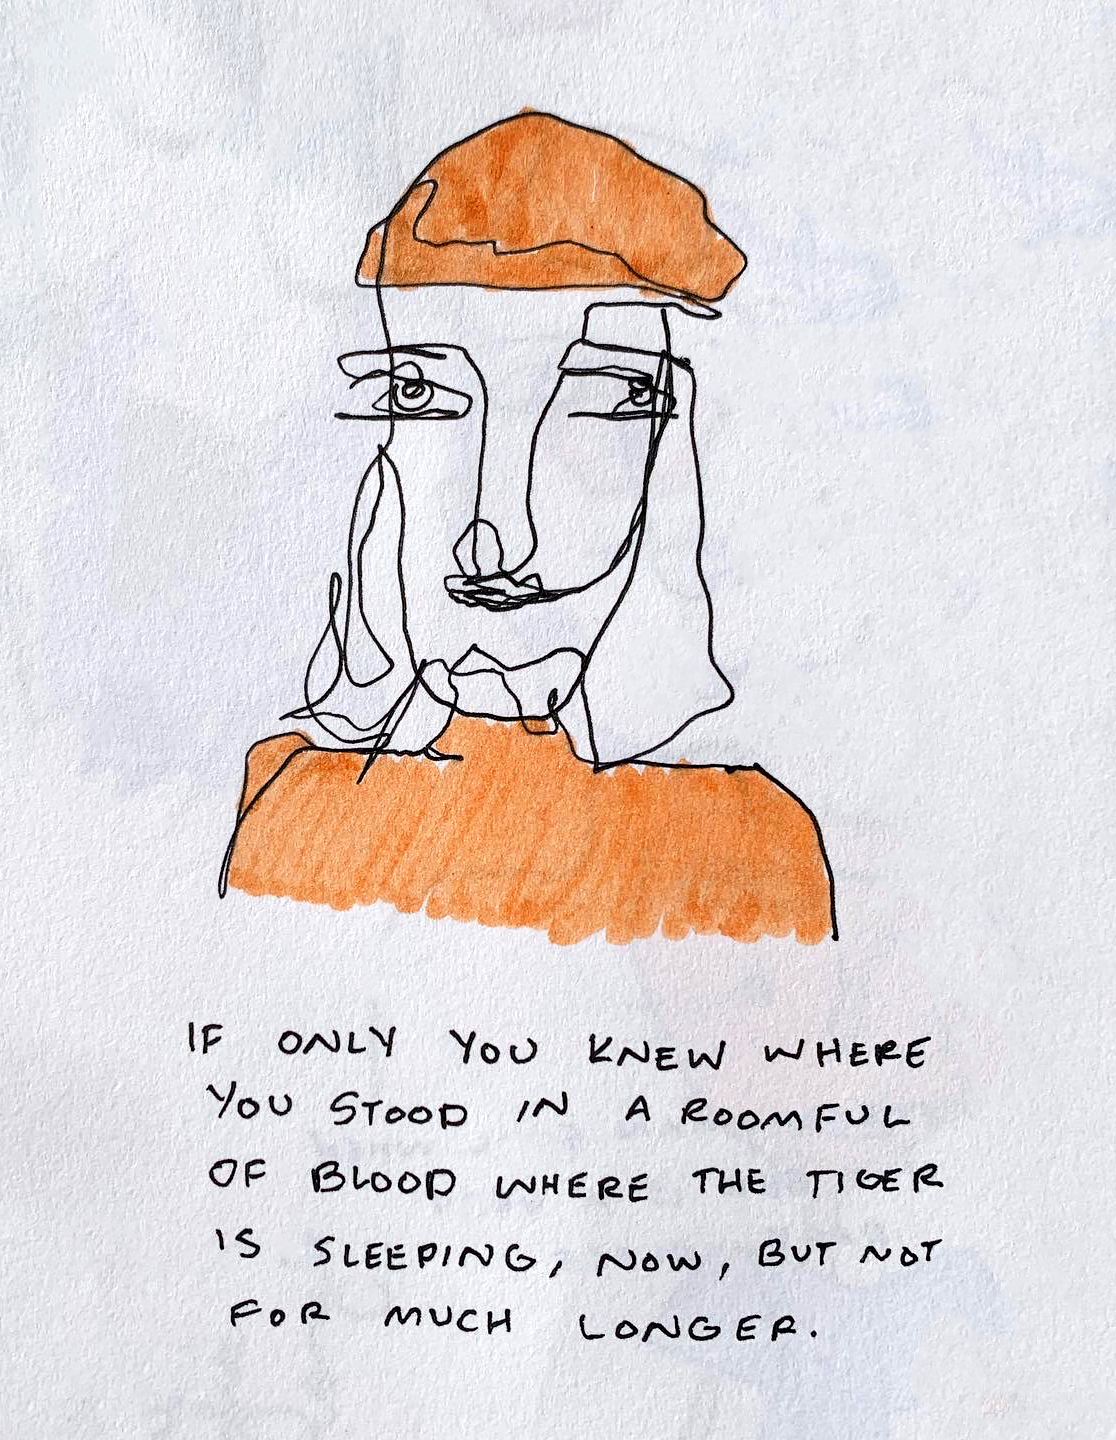 IF ONLY YOU KNEW WHERE
YOU STOOD IN A ROOMFUL
OF BLOOD WHERE THE TIGER
IS SLEEPING, NOW, BUT NOT
FOR MUCH LONGER.